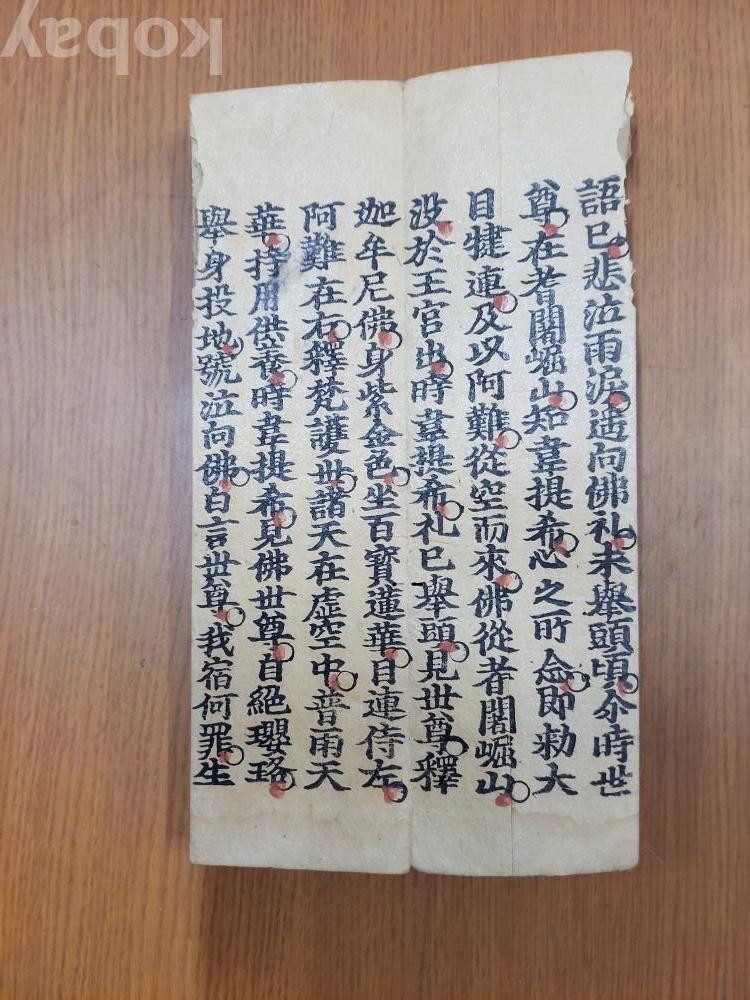 語已悲泣雨淚遥向佛礼未舉頭頃尒時世
尊在耆闍崛山知韋提希心之所念即勅大
目犍連及以阿難從空而來佛從耆闍崛山
没於王宮出時韋提希礼已舉頭見世尊釋
迦牟尼佛身紫金色坐百寶蓮華目連侍左
阿難在右釋梵護世諸天在虛空中普雨天
華持用供養時韋提希見佛世尊自絕瓔珞
舉身投地號泣向佛白言世尊我宿何罪生
kobay